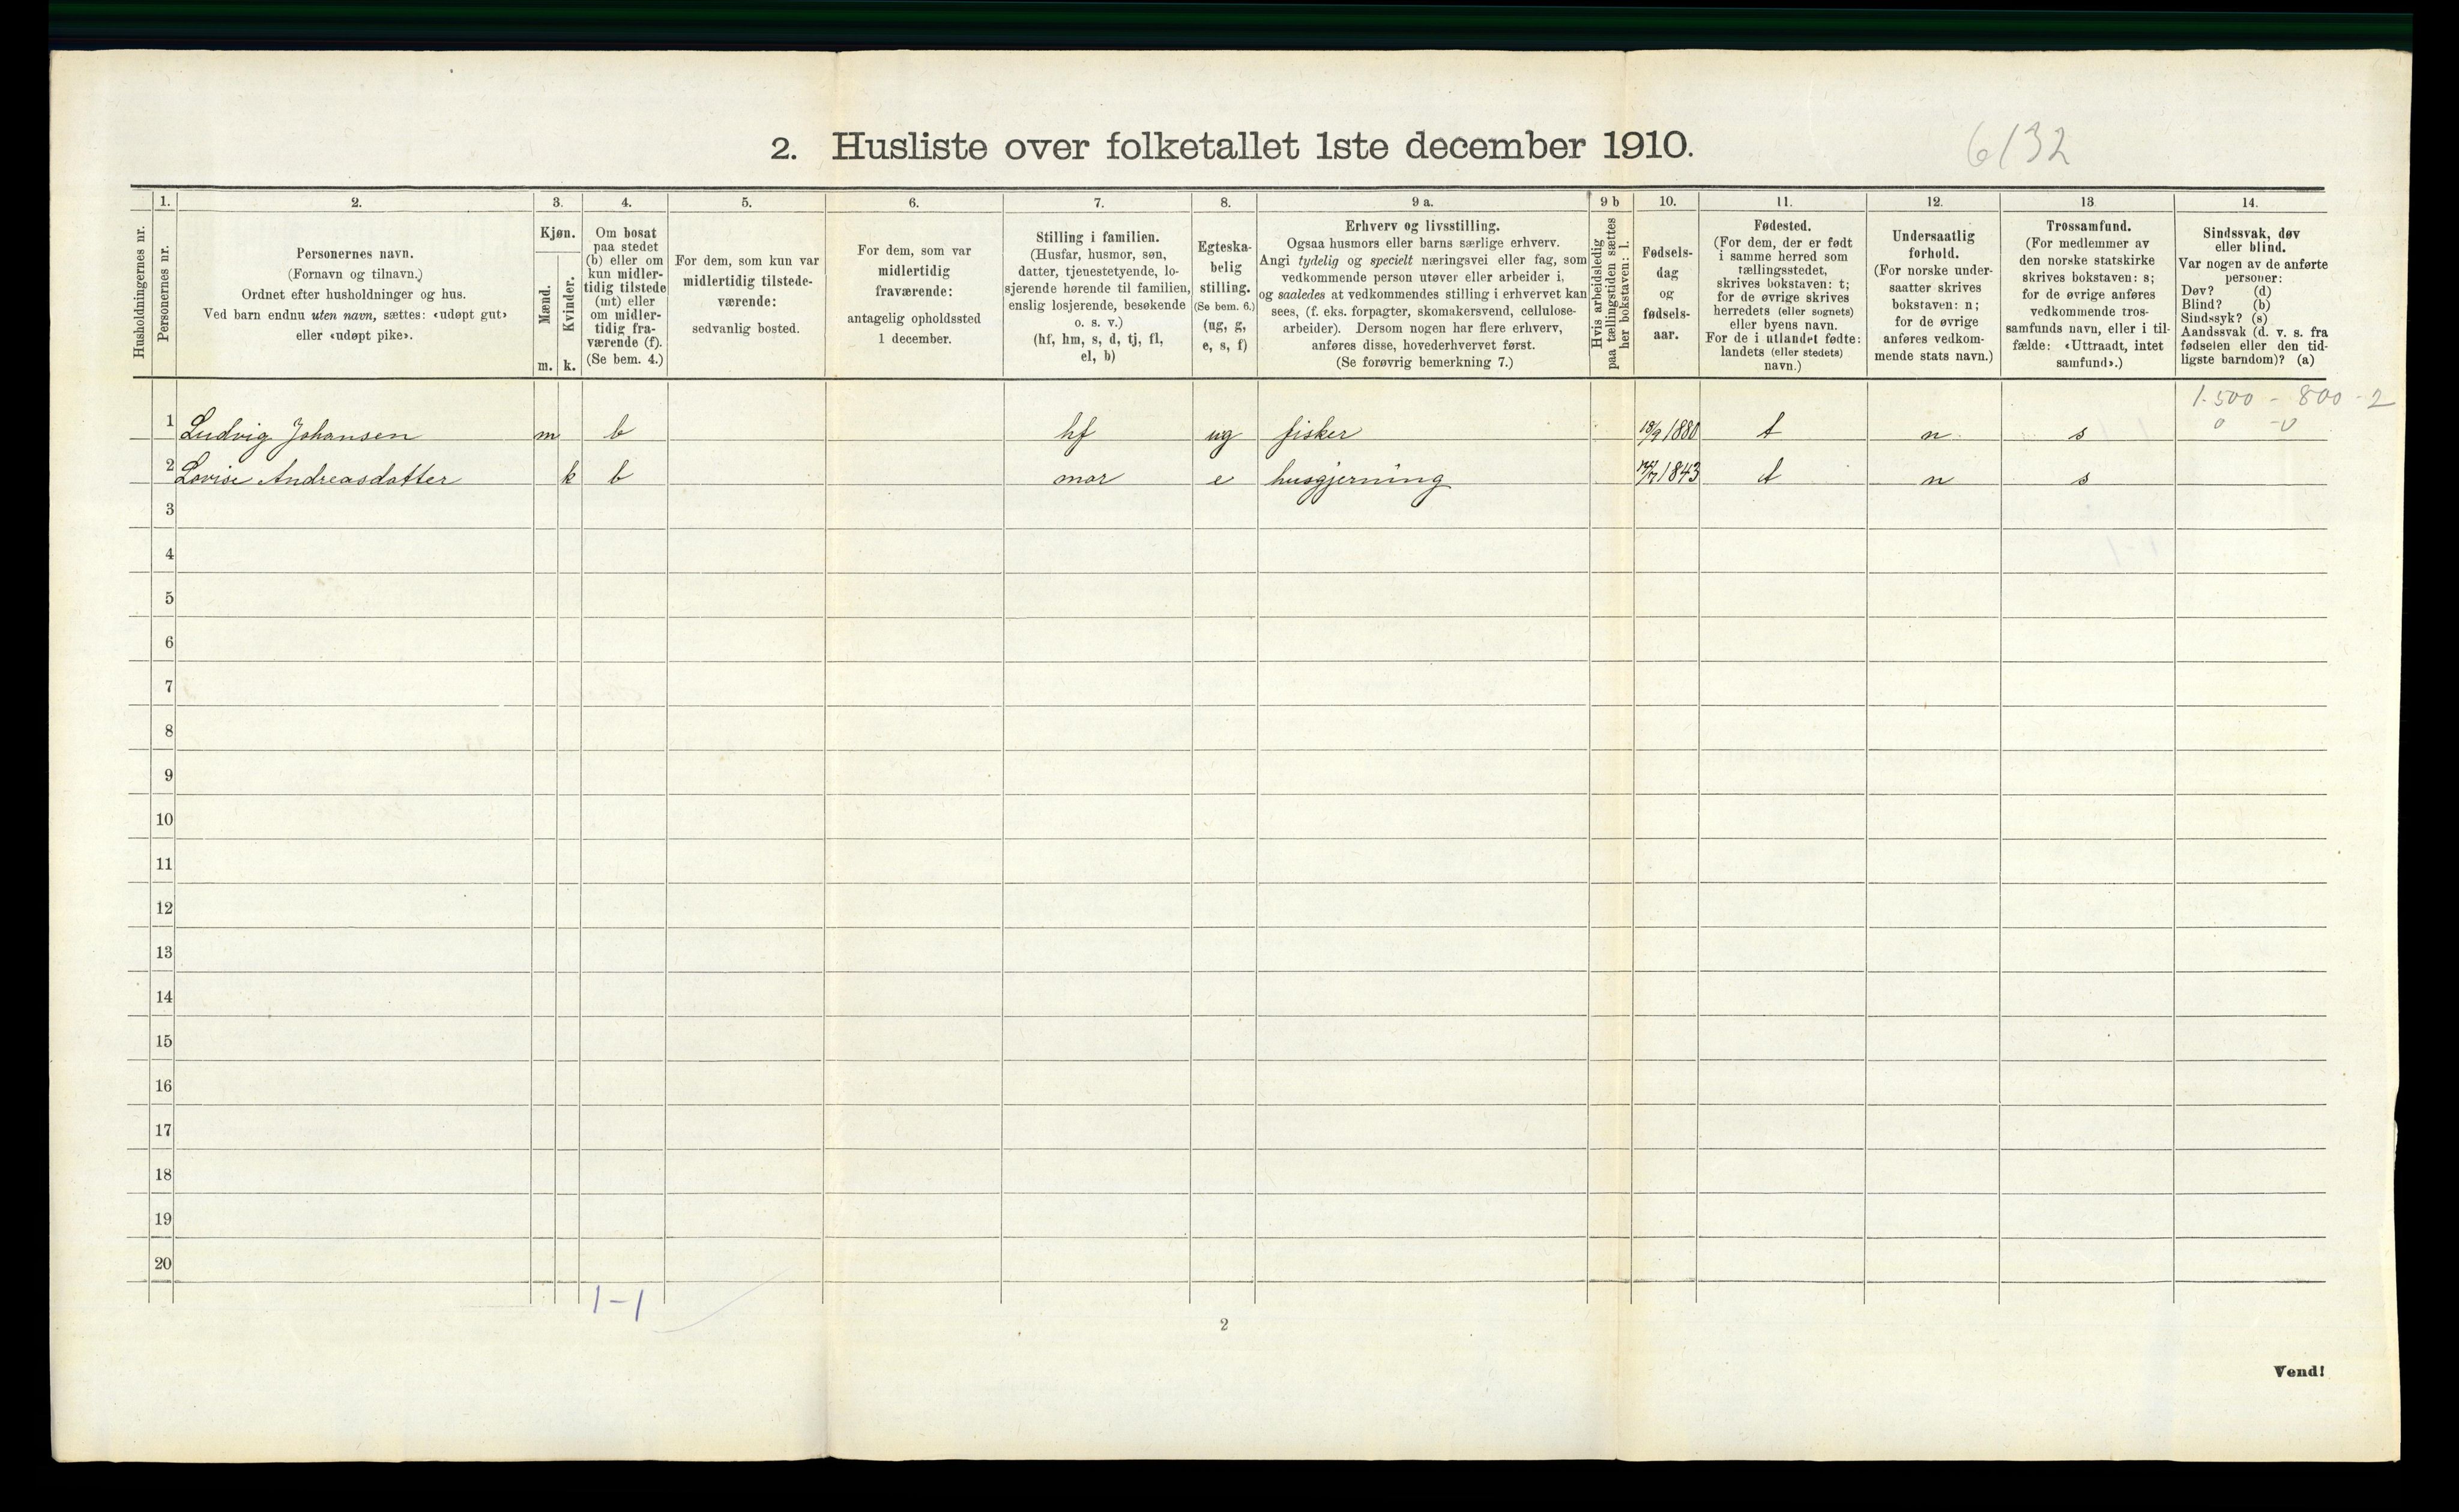 2. Husliste over folketallet 1ste december 1910.
6132
Husholdningernes nr.
1.
Personernes nr.
2.
Personernes navn.
(Fornavn og tilnavn.)
Ordnet efter husholdninger og hus.
Ved barn endnu uten navn, sættes: «udøpt gut»
eller «udøpt pike».
3.
Kjøn.
Mænd.
Kvinder.
m. k.
4.
Om bosat
paa stedet
(b) eller om
kun midler-
tidig tilstede
(mt) eller
om midler-
tidig fra-
værende (f).
(Se bem. 4.)
5.
For dem, som kun var
midlertidig tilstede-
værende:
sedvanlig bosted.
6.
For dem, som var
midlertidig
fraværende:
antagelig opholdssted
1 december.
7.
Stilling i familien.
(Husfar, husmor, søn,
datter, tjenestetyende, lo-
sjerende hørende til familien,
enslig losjerende, besøkende
o. s. v.)
(hf, hm, s, d, tj, fl,
el, b)
8.
Egteska-
belig
stilling.
(Se bem. 6.)
(ug, g,
e, s, f)
9 a.
Erhverv og livsstilling.
Ogsaa husmors eller barns særlige erhverv.
Angi tydelig og specielt næringsvei eller fag, som
vedkommende person utøver eller arbeider i,
og saaledes at vedkommendes stilling i erhvervet kan
sees, (f. eks. forpagter, skomakersvend, cellulose-
arbeider). Dersom nogen har flere erhverv,
anføres disse, hovederhvervet først.
(Se forøvrig bemerkning 7.)
9 b
Hvis arbeidsledig
paa tællingstiden sættes
her bokstaven: l.
10.
Fødsels-
dag
og
fødsels-
aar.
11.
Fødested.
(For dem, der er født
i samme herred som
tællingsstedet,
skrives bokstaven: t;
for de øvrige skrives
herredets (eller sognets)
eller byens navn.
For de i utlandet fødte:
landets (eller stedets)
navn.)
12.
Undersaatlig
forhold.
(For norske under-
saatter skrives
bokstaven: n;
for de øvrige
anføres vedkom-
mende stats navn.)
13
Trossamfund.
(For medlemmer av
den norske statskirke
skrives bokstaven: s;
for de øvrige anføres
vedkommende tros-
samfunds navn, eller i til-
fælde: «Uttraadt, intet
samfund».)
14.
Sindssvak, døv
eller blind.
Var nogen av de anførte
personer:
Døv? (d)
Blind? (b)
Sindssyk? (s)
Aandssvak (d. v. s. fra
fødselen eller den tid-
ligste barndom)? (a)
1.500 - 800 - 2
0 - 0
1 Ludvig Johansen m b hf ug fisker 1880 t n s
2 Lovise Andreasdatter k b mor e husgjerning 1843 t n s
3
4
5
6
7
8
9
10
11
12
13
14
15
16
17
18
19
20
1-1
2
Vend!